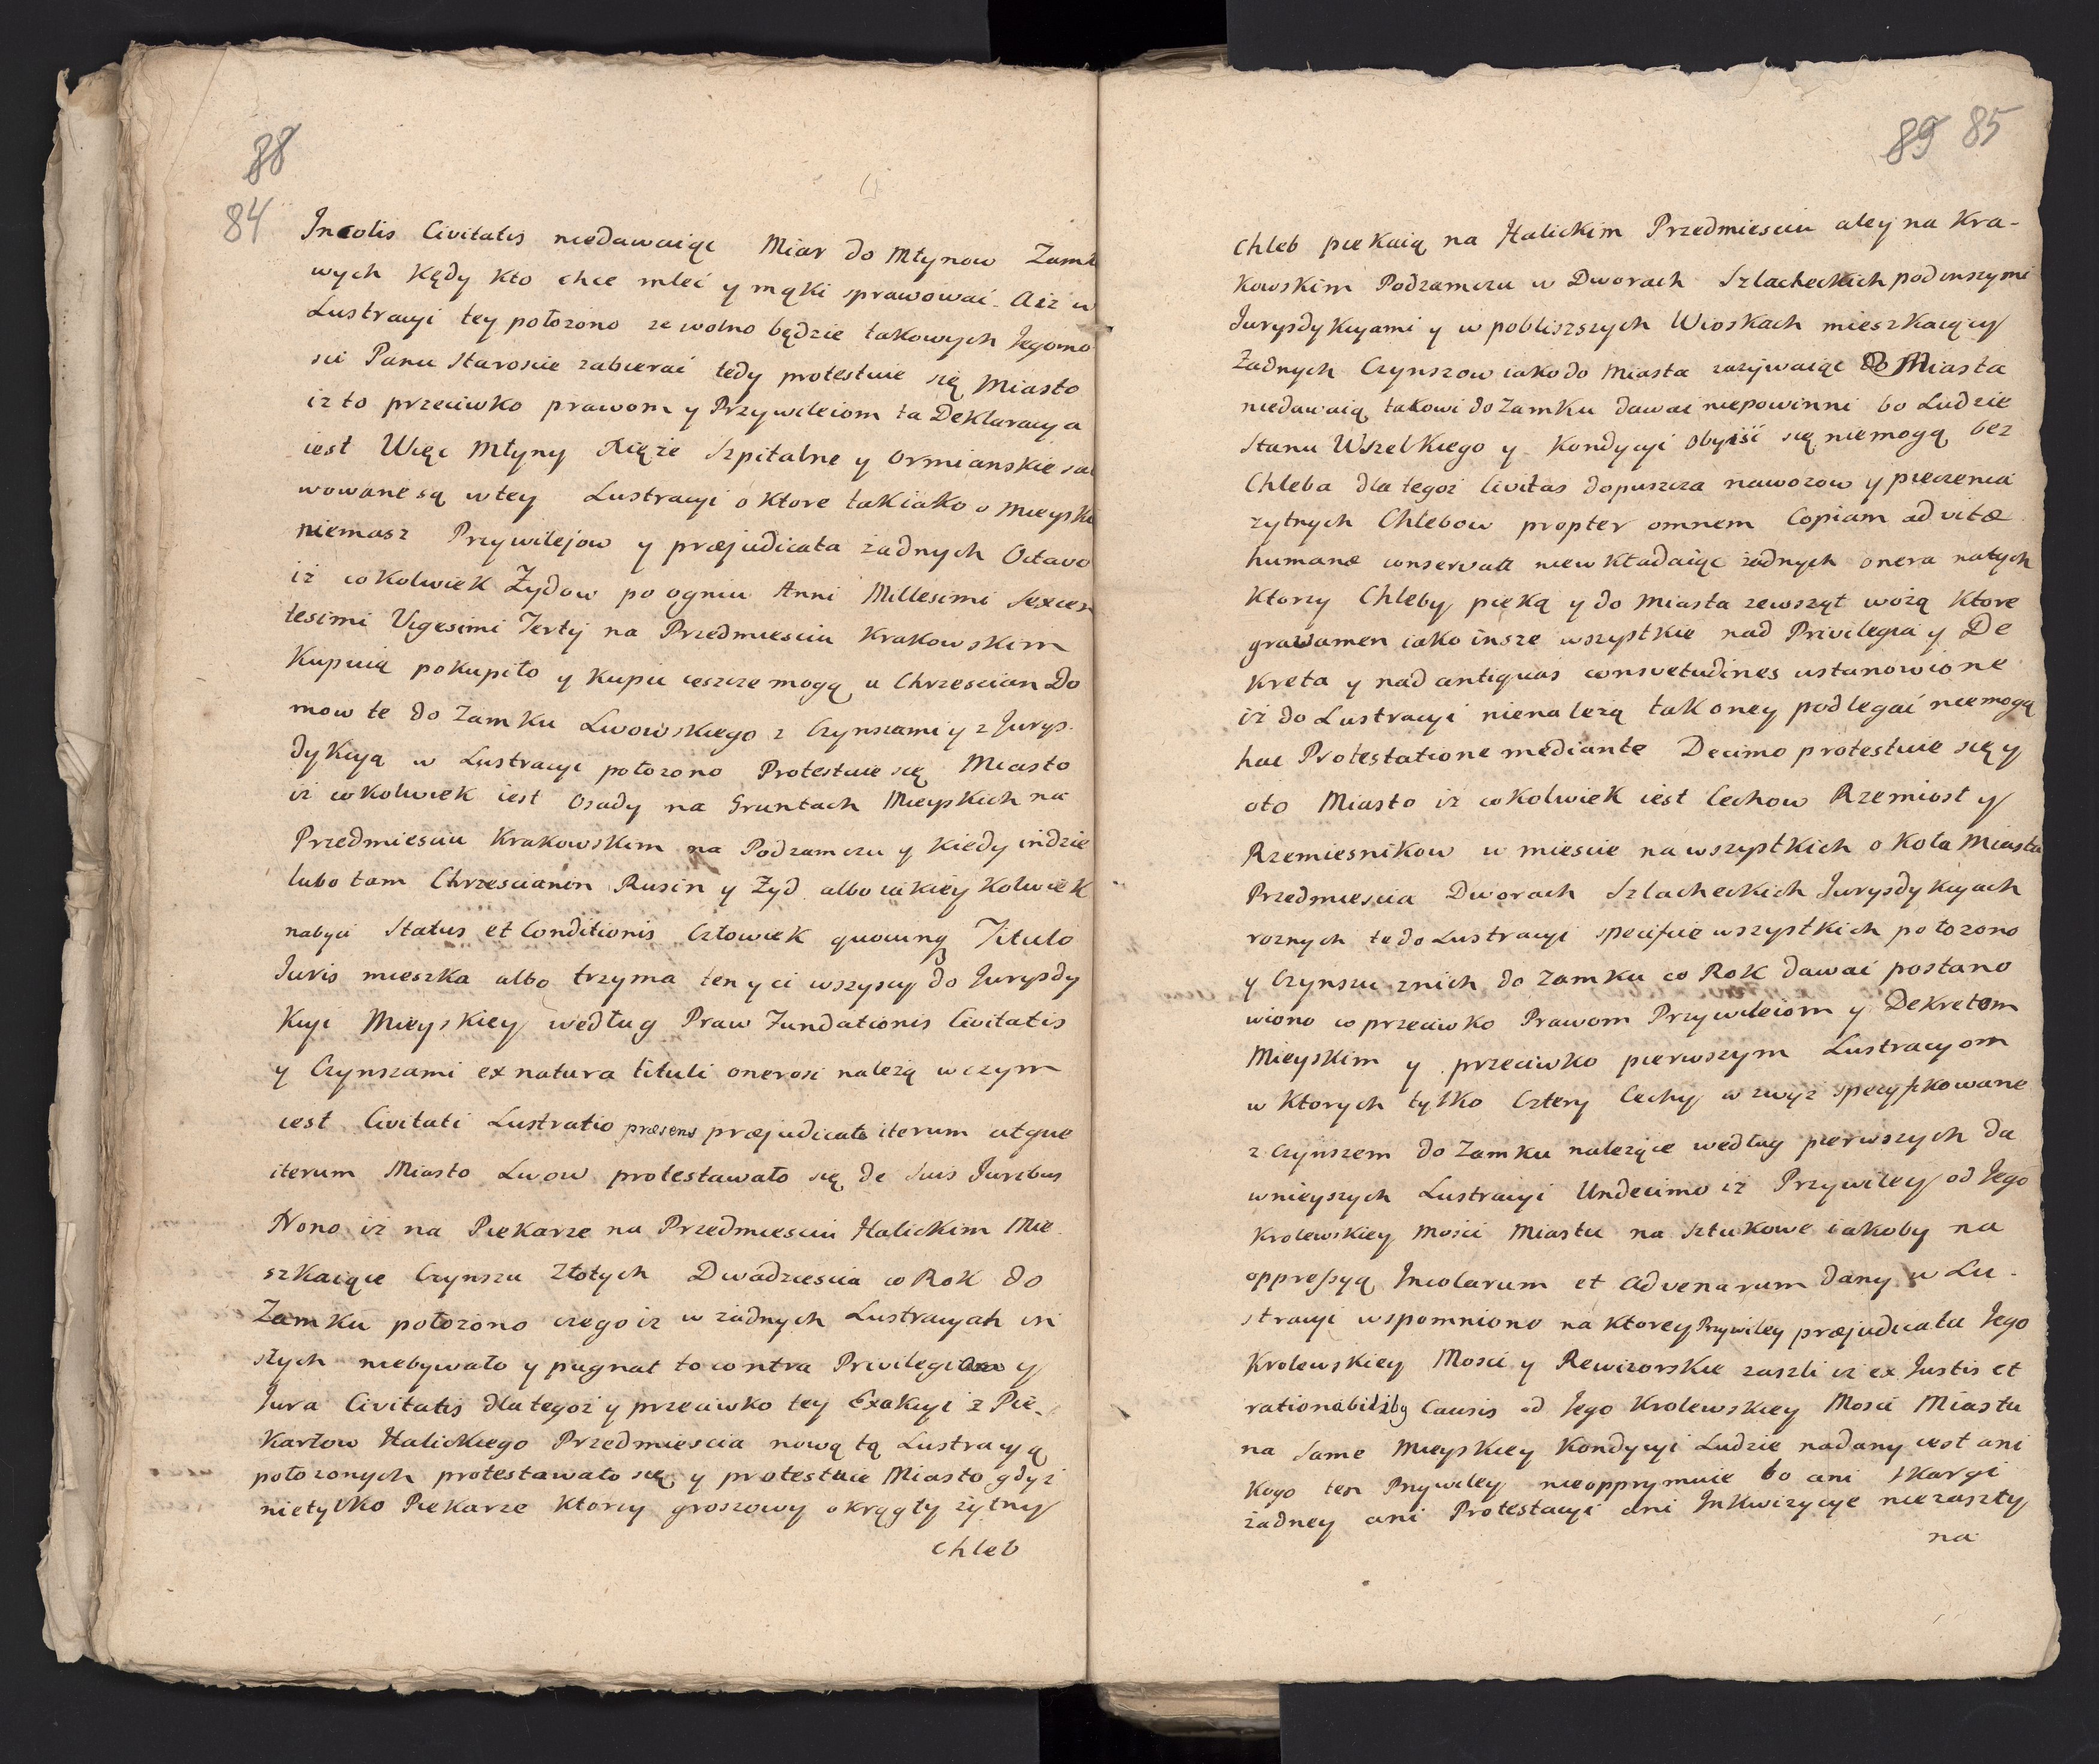 88
84
Incolis Civitatis niedawaiąc Miar do Młynow Zamk
wych Kędy Kto chce mleć y mąki sprawować. A iż w
Lustracyi tey położono ze wolno będzie takowych Jegomo
sci Panu Staroscie zabierai tedy protestuie się Miasto
iz to przeciwko prawom y Przywileiom ta Deklaracya
iest Więc Młyny Xięże Szpitalne y Ormianskie sal
wowane są w tey Lustracyi o Ktore tak iako o mieyskie
niemasz Przywilejow y præjudicata żadnych Octavo
iż cokolwiek Żydow po ogniu Anni Millesimi Sexcen
tesimi Vigesimi Tertij na Przedmiesciu Krakowskim
Kupnią pokupiło y Kupić ieszcze mogą u Chrzescian Do
mow te do Zamku Lwowskiego z Czynszami y z Jurys.
dykcyą w Lustracyi położono Protestuie się Miasto
iż cokolwiek iest Osady na Gruntach Mieyskich na
Przedmiesciu Krakowskim na Podzamczu y kiedy indzie
lubo tam Chrzescianin Rusin y Żyd albo iakiey Kolwiek
nabyci Status et Conditionis Człowiek quocunq Titulo
Juris mieszka albo trzyma ten y ci wszyscy do Jurysdy
Kcyi Mieyskiey według Praw Fundationis Civitatis
y Czynszami ex natura tituli onerosi należą w czym
iest Civitati Lustratio præsens præjudicata iterum atque
iterum Miasto Lwow protestawało się de Suis Juribus
Nono iż na Piekarze na Przedmiesciu Halickim Mie.
szkaiące Czynszu Złotych Dwadziescia co Rok do
Zamku położono czego iz w żadnych Lustracyah in
szych niebywało y pugnat to contra Privilegia y
Jura Civitatis dla tegoż y przeciwko tey Exakcyi z Pie.
Karzow Halickiego Przedmiescia nową tą Lustracyą
położonych protestawało się y protestuie Miasto gdyż
nietylko Piekarze Ktorzy groszowy okrągły żytny
chleb
89 85
chleb piekaią na Halickim Przedmiesciu aley na Kra-
kowskim Podzamczu w Dworach Szlacheckich pod inszymi
Jurysdykcyami y w pobliszszych Wioskach mieszkaiący
Żadnych Czynszow iako do Miasta zażywaiąc do Miasta
niedawaią takowi do Zamku dawai niepowinni bo Ludzie
Stanu Wszelkiego y Kondycyi obyiść się niemogą bez
Chleba dla tegoż Civitas dopuszcza nawozow y pieczenia
żytnych Chlebow propter omnem Copiam ad vitæ
humanæ conservatt niewkładaiąc żadnych onera na tych
Ktorzy Chleby pieką y do Miasta zewsząt wożą Ktore
gravamen iako insze wszystkie nad Privilegia y De
Kreta y nad antiquas consvetudines ustanowione
iż do Lustracyi nienależą tak oney podlegać niemogą
hac Protestatione mediante Decimo protestuie się y
oto Miasto iż cokolwiek iest Cechow Rzemiosł y
Rzemiesnikow w miescie na wszystkich o Koła Miasta
Przedmiescia Dworach Szlacheckich Jurysdykcyach
roznych te do Lustracyi specifice wszystkich położono
y Czynszu z nich do Zamku co Rok dawai postano
wiono co przeciwko Prawom Przywileiom y Dekretom
Mieyskim y przeciwko pierwszym Lustracyom
w Ktorych tylko Cztery Cechy wzwyż specyfikowane
z Czynszem do Zamku należące według pierwszych da
wnieyszych Lustracyi Undecimo iż Przywiley od Jego
Krolewskiey Mosci Miastu na Sztukowe iakoby na
oppressyą Incolarum et Advenarum dany w Lu-
stracyi wspomniono na Ktorey Przywiley præjudicata Jego
Krolewskiey Mosci y Rewizorskie zaszli iż ex Justis et
rationabilibq Causis od Jego Krolewskiey Mosci Miastu
na same Mieyskiey Kondycyi Ludzie nadany iest ani
Kogo ten Przywiley nieopprymuie bo ani Skargi
żadney ani Protestacyi ani Inkwizycye niezaszły
na